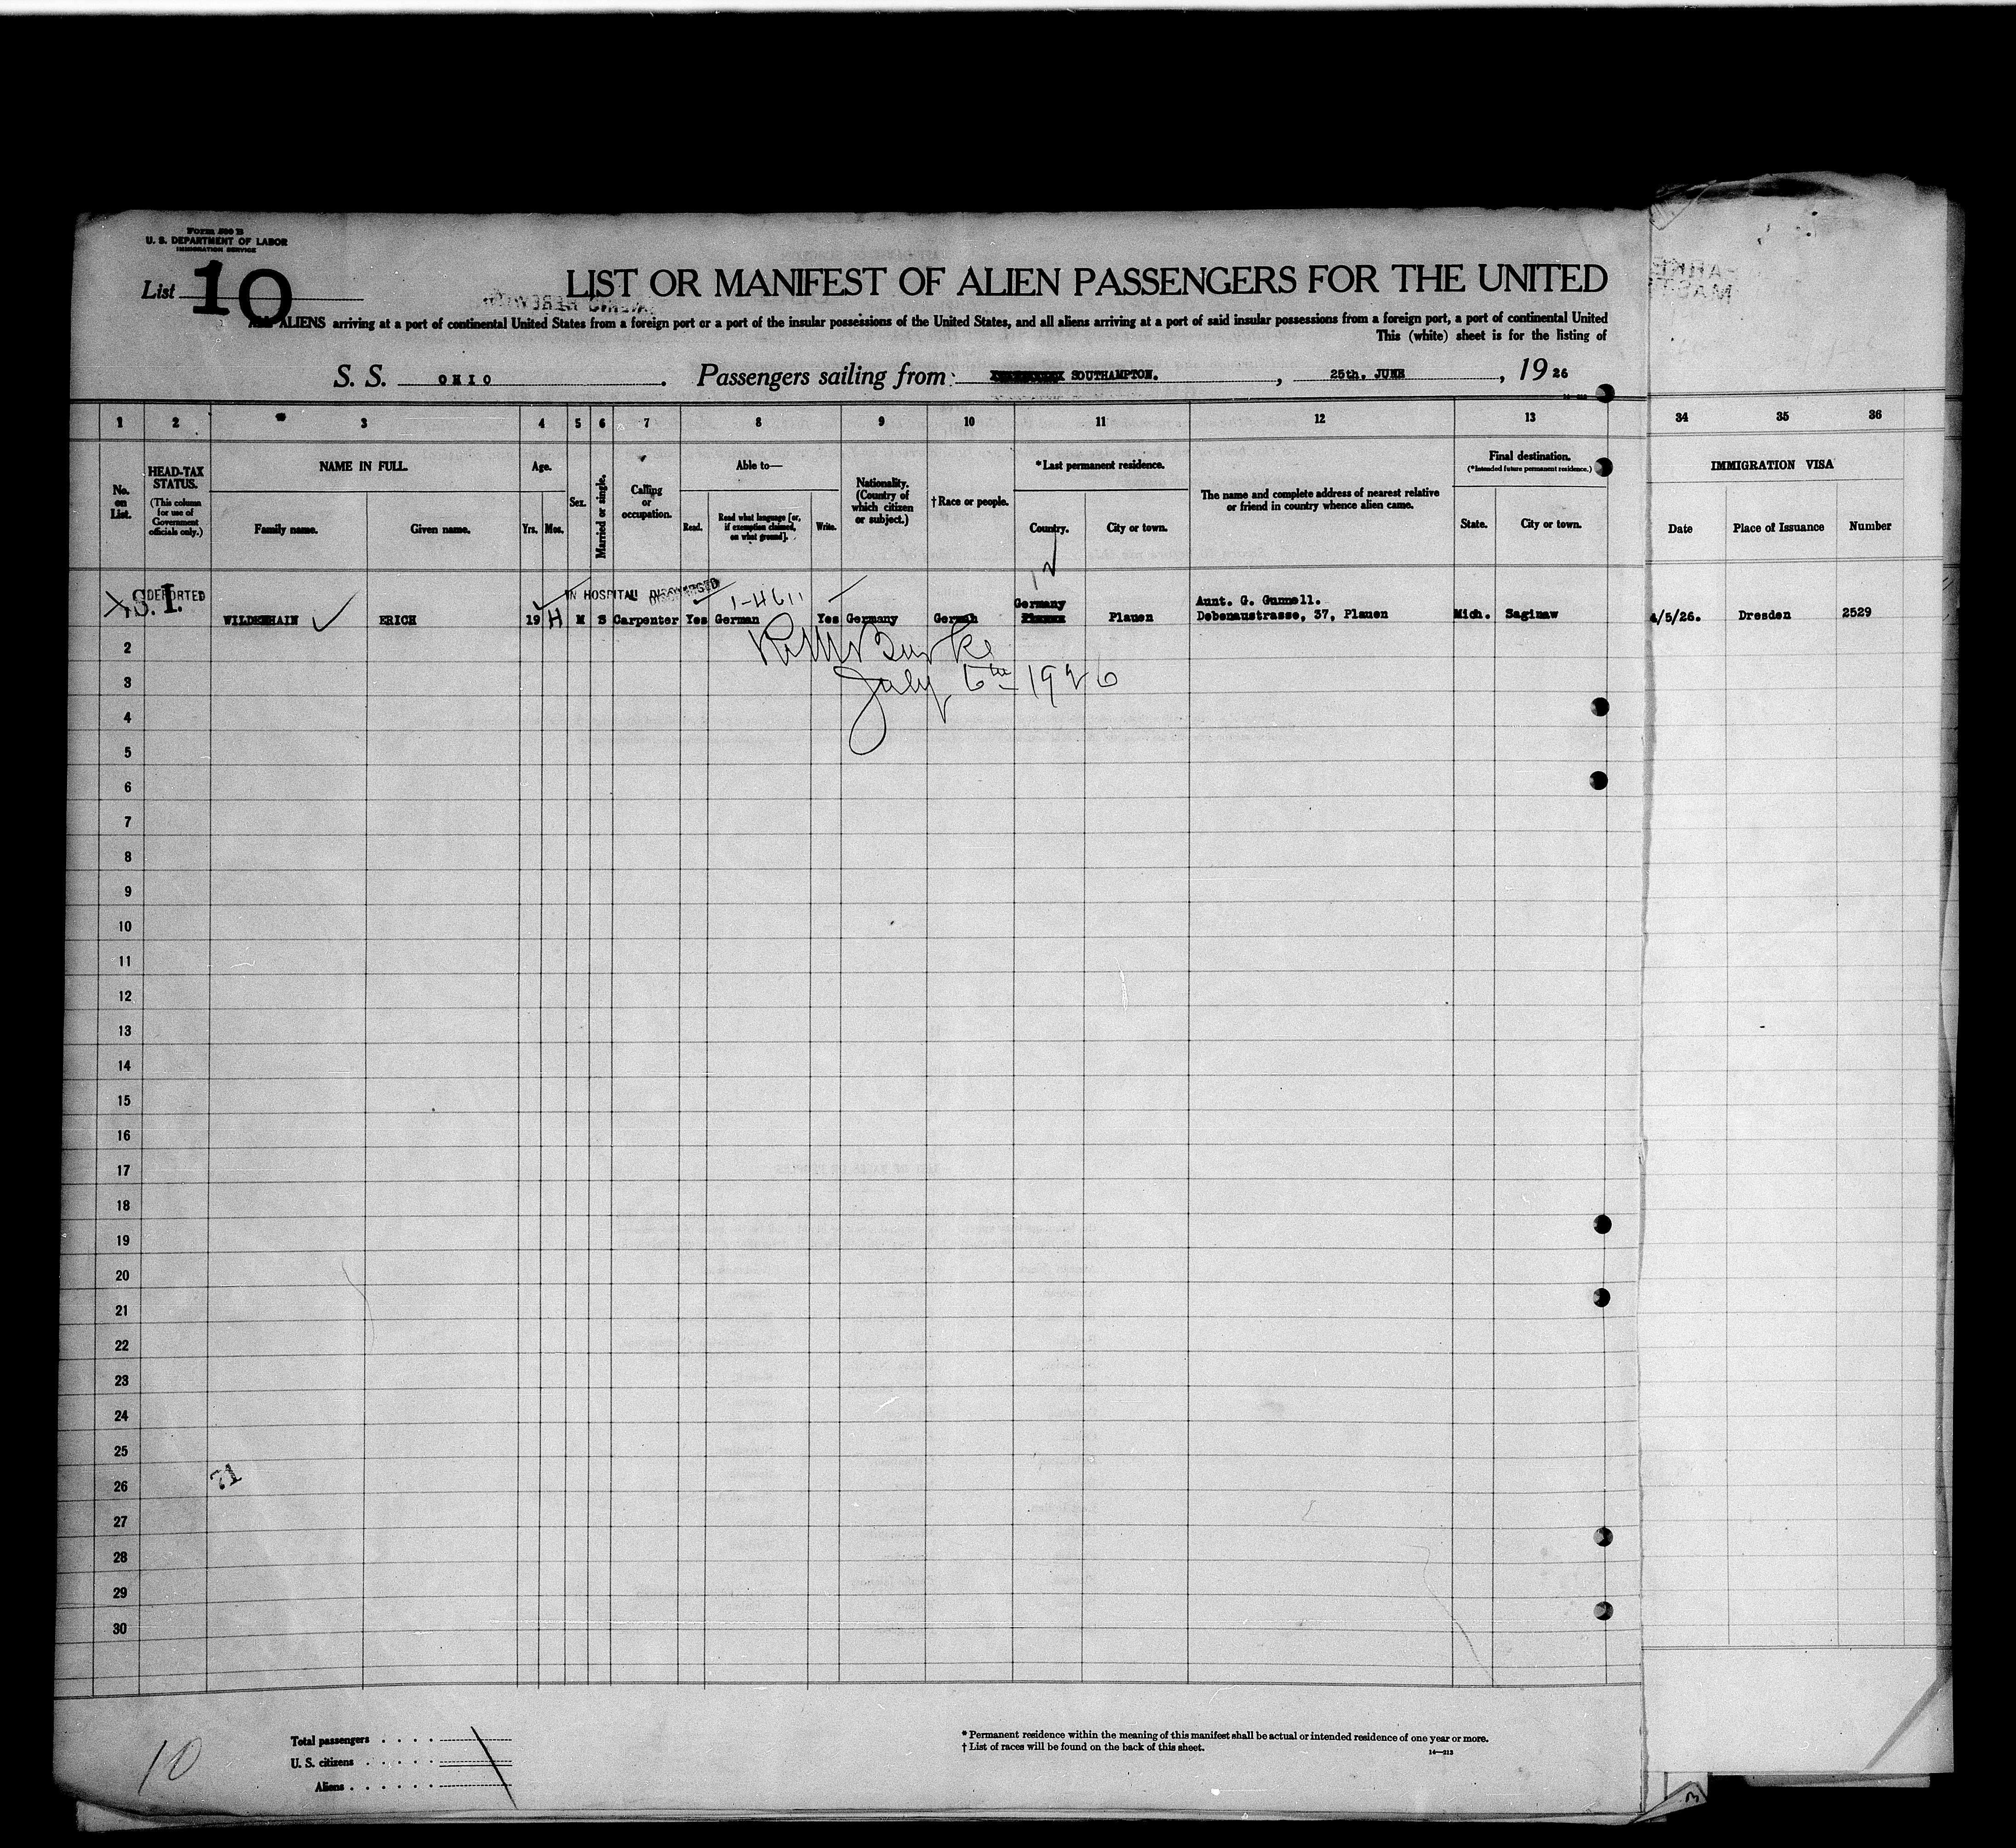 Form 500 B
U. S. DEPARTMENT OF LABOR
IMMIGRATION SERVICE
List 10
LIST OR MANIFEST OF ALIEN PASSENGERS FOR THE UNITED
ALL ALIENS arriving at a port of continental United States from a foreign port or a port of the insular possessions of the United States, and all aliens arriving at a port of said insular possessions from a foreign port, a port of continental United
This (white) sheet is for the listing of
S. S. OHIO. Passengers sailing from: SOUTHAMPTON. , 25th. JUNE , 19 26
1 2 3 4 5 6 7 8 9 10 11 12 13 34 35 36
No. on List.
HEAD-TAX STATUS.
(This column for use of Government officials only.)
NAME IN FULL.
Family name. Given name.
Age.
Yrs. Mos.
Sex.
Married or single.
Calling or occupation.
Able to—
Read. Read what language [or, if exemption claimed, on what ground]. Write.
Nationality. (Country of which citizen or subject.)
†Race or people.
*Last permanent residence.
Country. City or town.
The name and complete address of nearest relative or friend in country whence alien came.
Final destination.
(*Intended future permanent residence.)
State. City or town.
IMMIGRATION VISA
Date Place of Issuance Number
X S. I. DEPORTED
IN HOSPITAL DISCHARGED
1-4611
WILDENHAIN ERICH 19 H M S Carpenter Yes German Yes Germany German Germany Plauen Aunt. G. Gunnell. Debenaustrasse, 37, Plauen Mich. Saginaw 4/5/26. Dresden 2529
Burke
July 6th 1926
2
3
4
5
6
7
8
9
10
11
12
13
14
15
16
17
18
19
20
21
22
23
24
25
26
27
28
29
30
21
10
Total passengers . . . .
U. S. citizens . . . . .
Aliens . . . . . .
* Permanent residence within the meaning of this manifest shall be actual or intended residence of one year or more.
† List of races will be found on the back of this sheet.
14—213